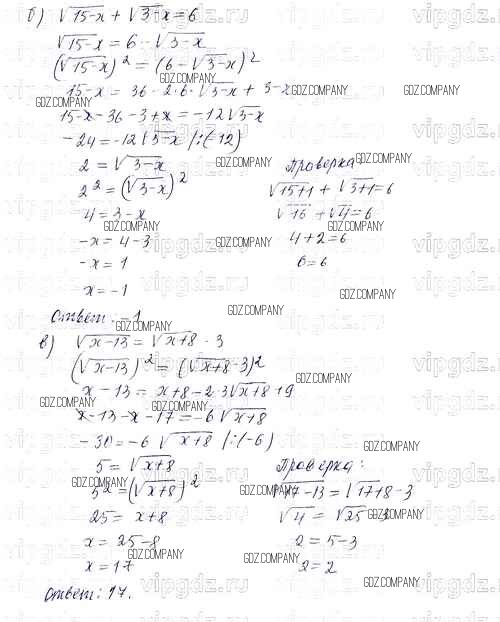 б) √15-x + √3-x = 6
√15-x = 6 - √3-x
(√15-x)² = (6 - √3-x)²
15-x = 36 - 2·6·√3-x + 3-x
15-x-36-3+x = -12√3-x
-24 = -12√3-x /:(-12)
2 = √3-x
2² = (√3-x)²
4 = 3-x
-x = 4-3
-x = 1
x = -1
Проверка
√15+1 + √3+1 = 6
√16 + √4 = 6
4+2=6
6=6
Ответ: -1
в) √x-13 = √x+8 - 3
(√x-13)² = (√x+8 - 3)²
x-13 = x+8-2·3√x+8+9
x-13-x-17 = -6√x+8
-30 = -6√x+8 /:(-6)
5 = √x+8
5² = (√x+8)²
25 = x+8
x = 25-8
x = 17
Проверка:
√17-13 = √17+8 - 3
√4 = √25 - 3
2 = 5-3
2=2
Ответ: 17.
vipgdz.ru
GDZ.COMPANY